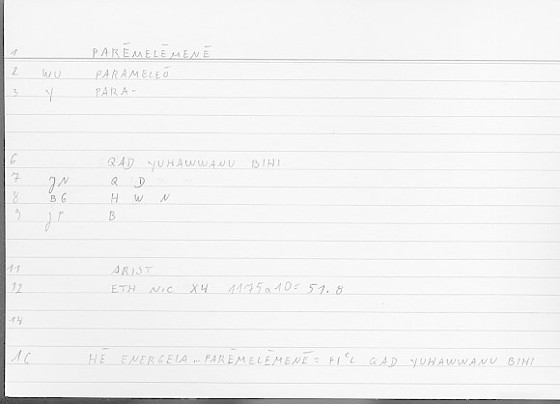 1 PARĒMELĒMENĒ
2 WU PARAMELEŌ
3 Y PARA-
6 QAD YUHAWWANU BIHI
7 JN Q D
8 BG H W N
9 JP B
11 ARIST
12 ETH NIC X4 1175a10 = 51.8
14
16 HĒ ENERGEIA... PARĒMELĒMENĒ = FIᶜL QAD YUHAWWANU BIHI